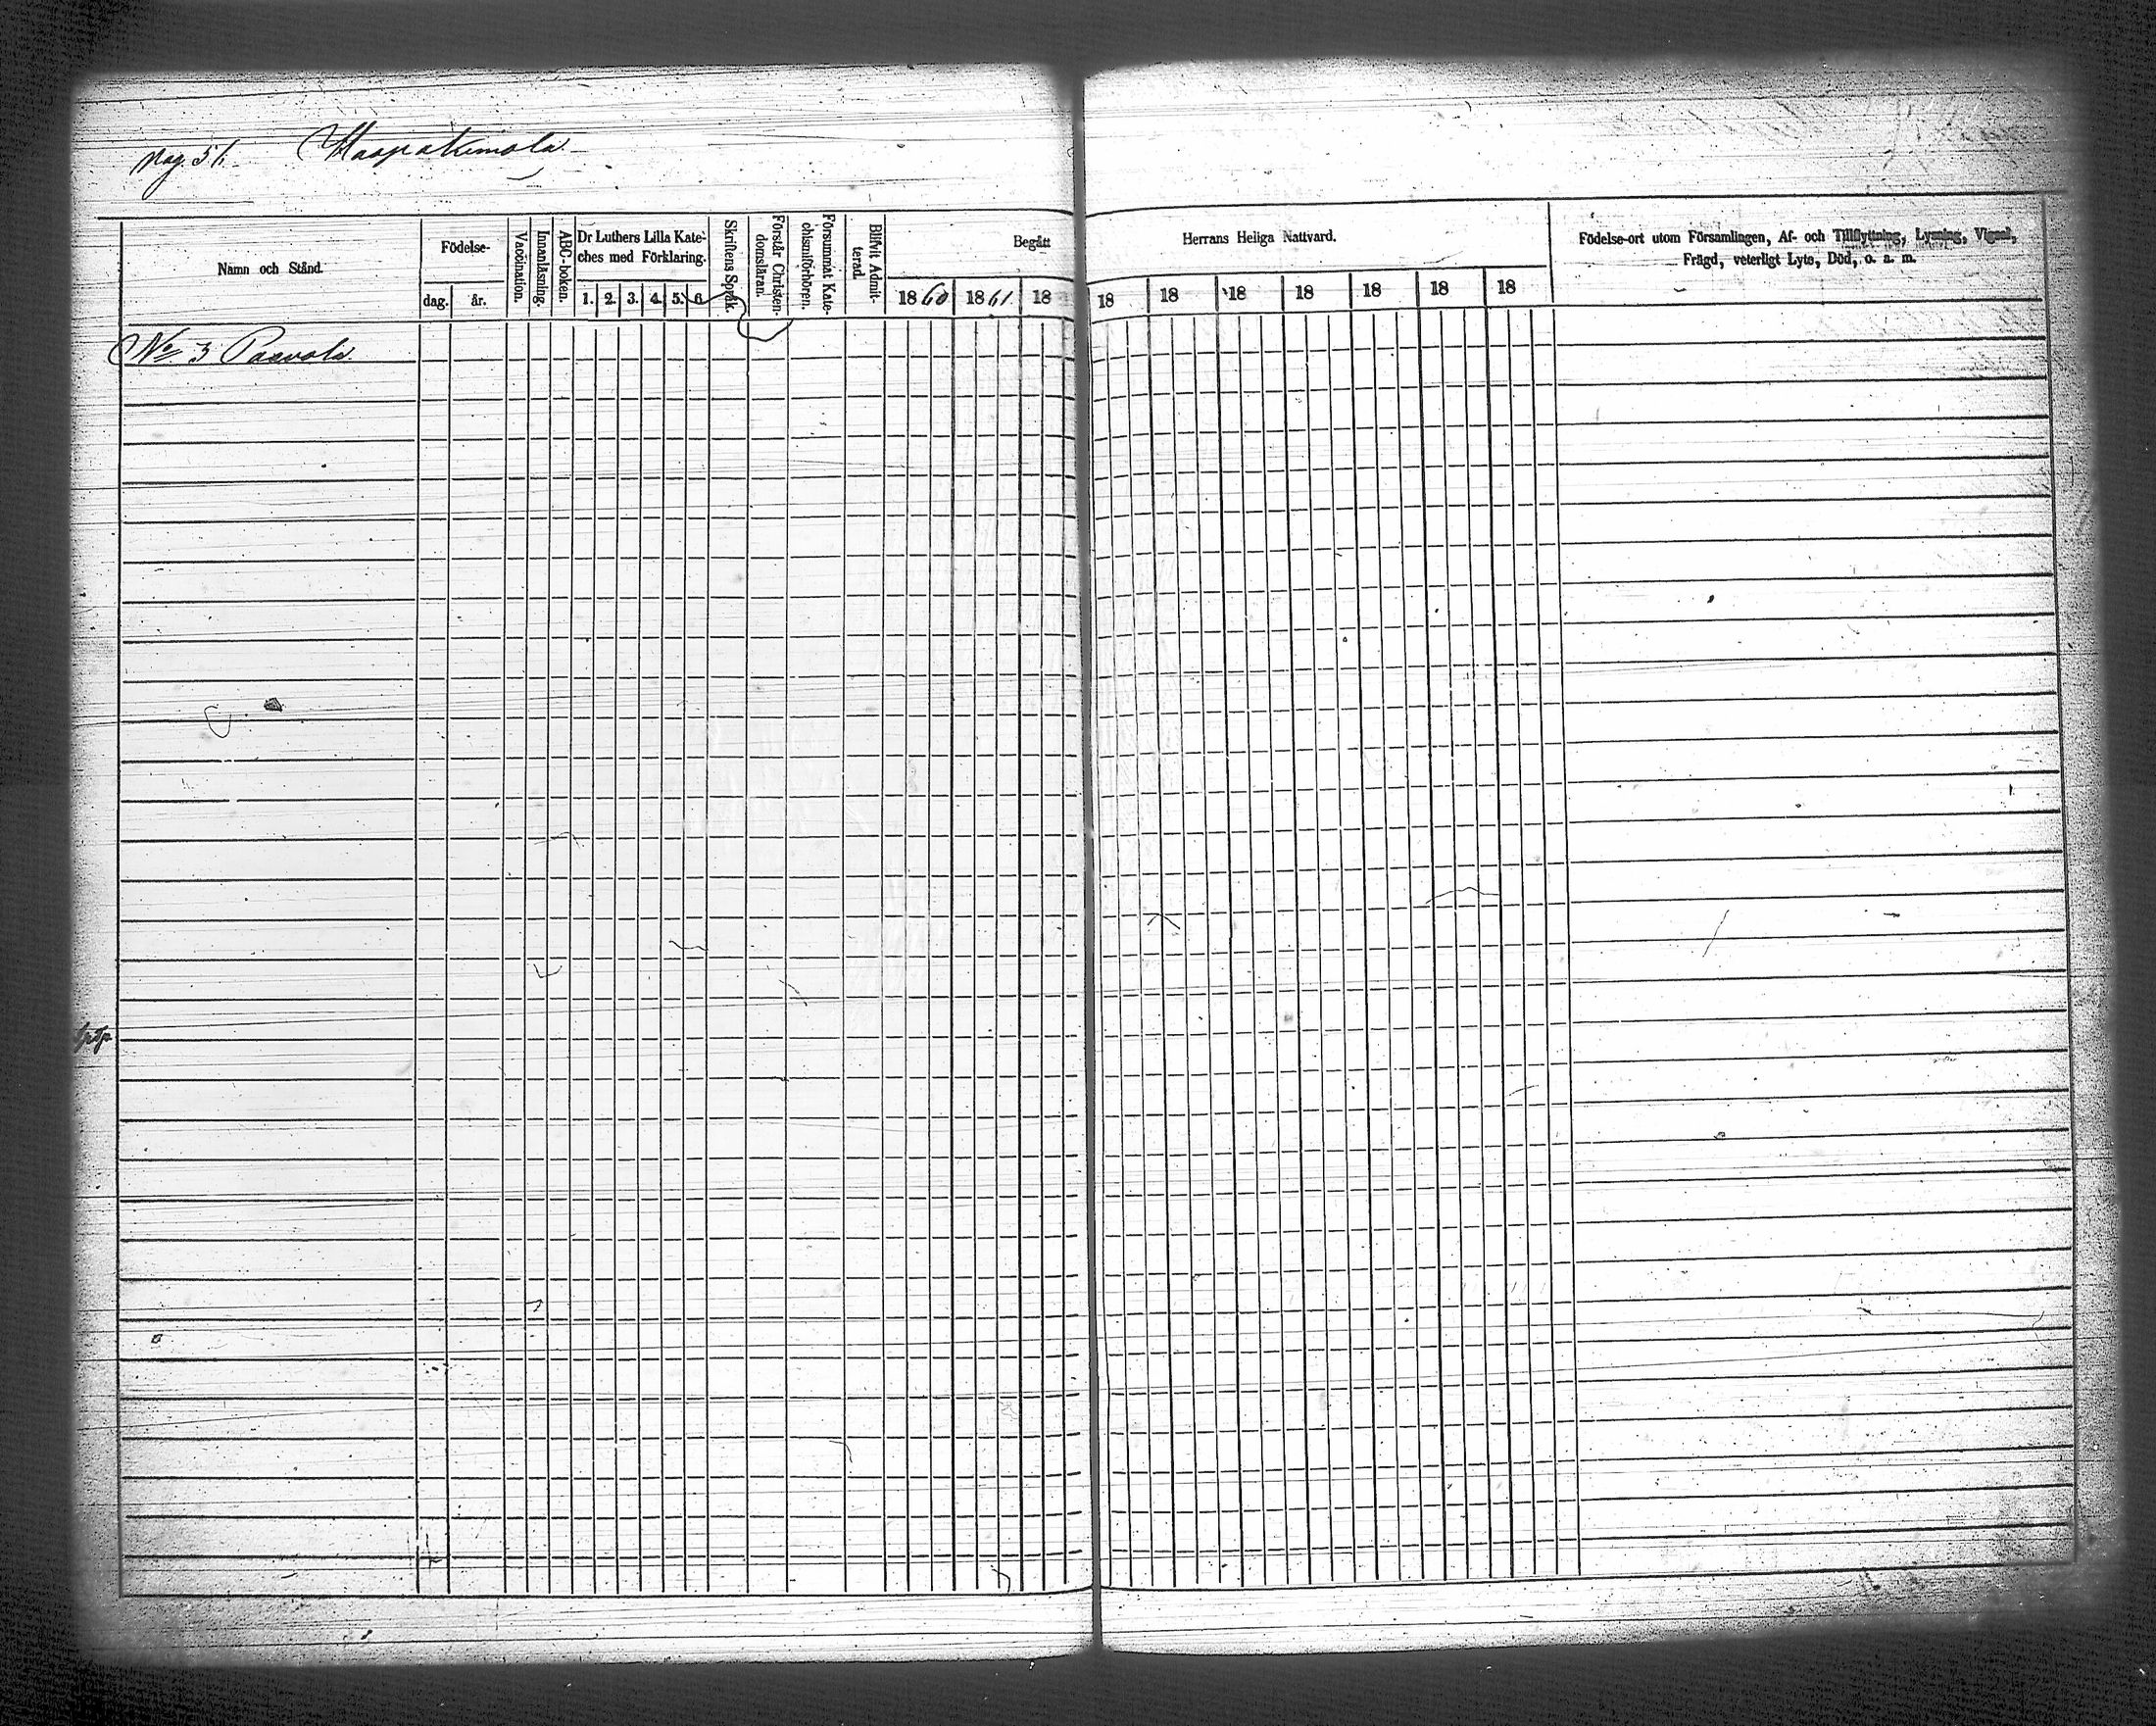 pag. 51. Haapakimola.
Namn och Stånd.
Födelse-
dag. år.
Vaccination.
Innanläsning.
ABC-boken.
Dr Luthers Lilla Kate-
ches med Förklaring.
1. 2. 3. 4. 5. 6.
Skriftens Språk.
Förstår Christen-
domsläran.
Försummat Kate-
chismiförhören.
Blifvit Admit-
terad.
Begått Herrans Heliga Nattvard.
1860 1861 18 18 18 18 18 18 18 18
Födelse-ort utom Församlingen, Af- och Tillflyttning, Lysning, Vigsel,
Frägd, veterligt Lyte, Död, o. a. m.
No 3 Paavola